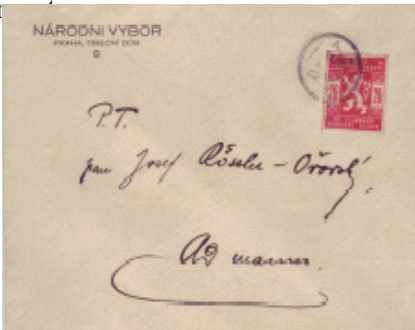 NÁRODNI VYBOR
PRAHA, OBECNÍ DŮM
P.T.
pan Josef Rössler-Ořovský
Ad manus.